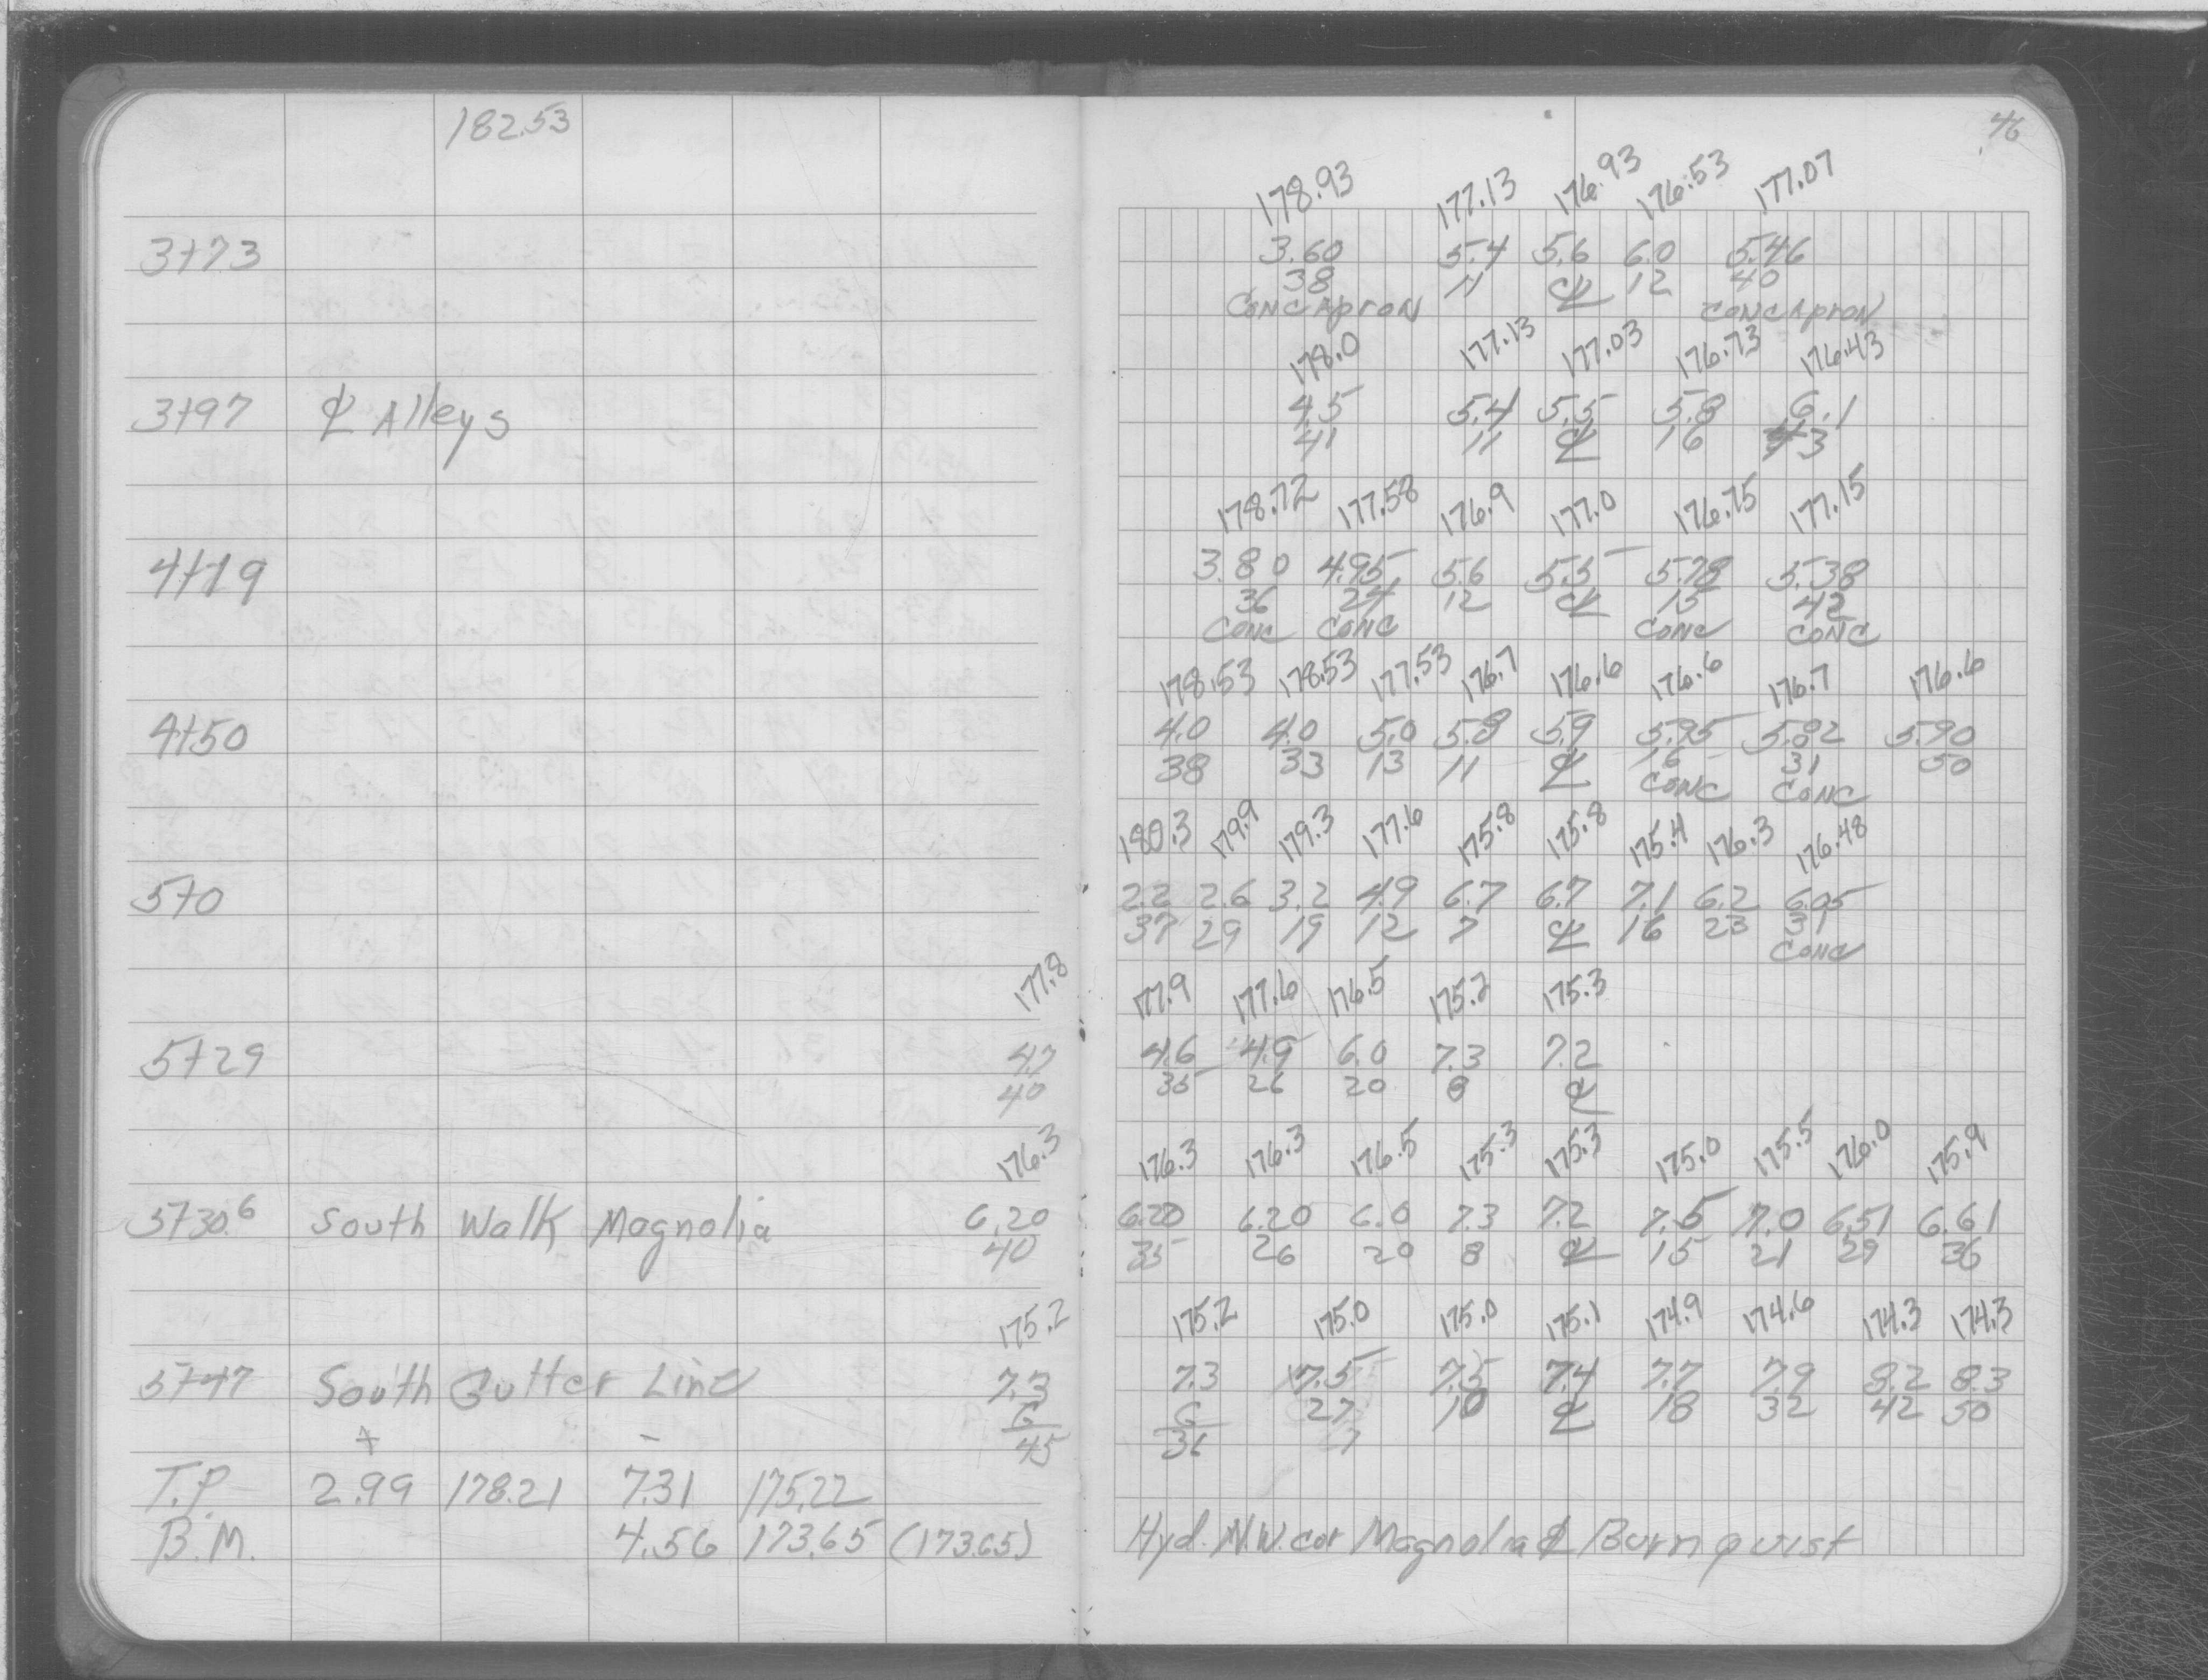 182.53
46
178.93 177.13 176.93 176.53 177.07
3+73 3.60 5.4 5.6 6.0 5.46
38 11 ℄ 12 40
CONC Apron CONC Apron
178.0 177.13 177.03 176.73 176.43
3+97 ℄ Alleys 4.5 5.4 5.5 5.8 6.1
41 11 ℄ 16 43
178.72 177.58 176.9 177.0 176.75 177.15
4+19 3.80 4.95 5.6 5.5 5.78 5.38
36 24 12 ℄ 15 42
CONC CONC CONC CONC
178.53 178.53 177.53 176.7 176.6 176.6 176.7 176.6
4+50 4.0 4.0 5.0 5.8 5.9 5.95 5.82 5.90
38 33 13 11 ℄ 16 31 50
CONC CONC
180.3 179.9 179.3 177.6 175.8 175.8 175.4 176.3 176.48
5+0 2.2 2.6 3.2 4.9 6.7 6.7 7.1 6.2 6.05
37 29 19 12 7 ℄ 16 23 31
CONC
177.8 177.9 177.6 176.5 175.2 175.3
5+29 4.7 4.6 4.9 6.0 7.3 7.2
40 35 26 20 8 ℄
176.3 176.3 176.3 176.5 175.3 175.3 175.0 175.5 176.0 175.9
5+30.6 South Walk Magnolia 6.20 6.20 6.20 6.0 7.3 7.2 7.5 7.0 6.51 6.61
40 35 26 20 8 ℄ 15 21 29 36
175.2 175.2 175.0 175.0 175.1 174.9 174.6 174.3 174.3
5+47 South Gutter Line 7.3 7.3 7.5 7.5 7.4 7.7 7.9 8.2 8.3
G G 27 10 ℄ 18 32 42 50
+ - 45 36
T.P. 2.99 178.21 7.31 175.22
B.M. 4.56 173.65 (173.65) Hyd. N.W. cor Magnolia & Burnquist